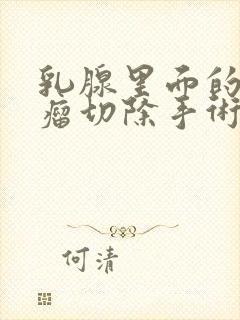 乳腺里面的
瘤切除手术
何清